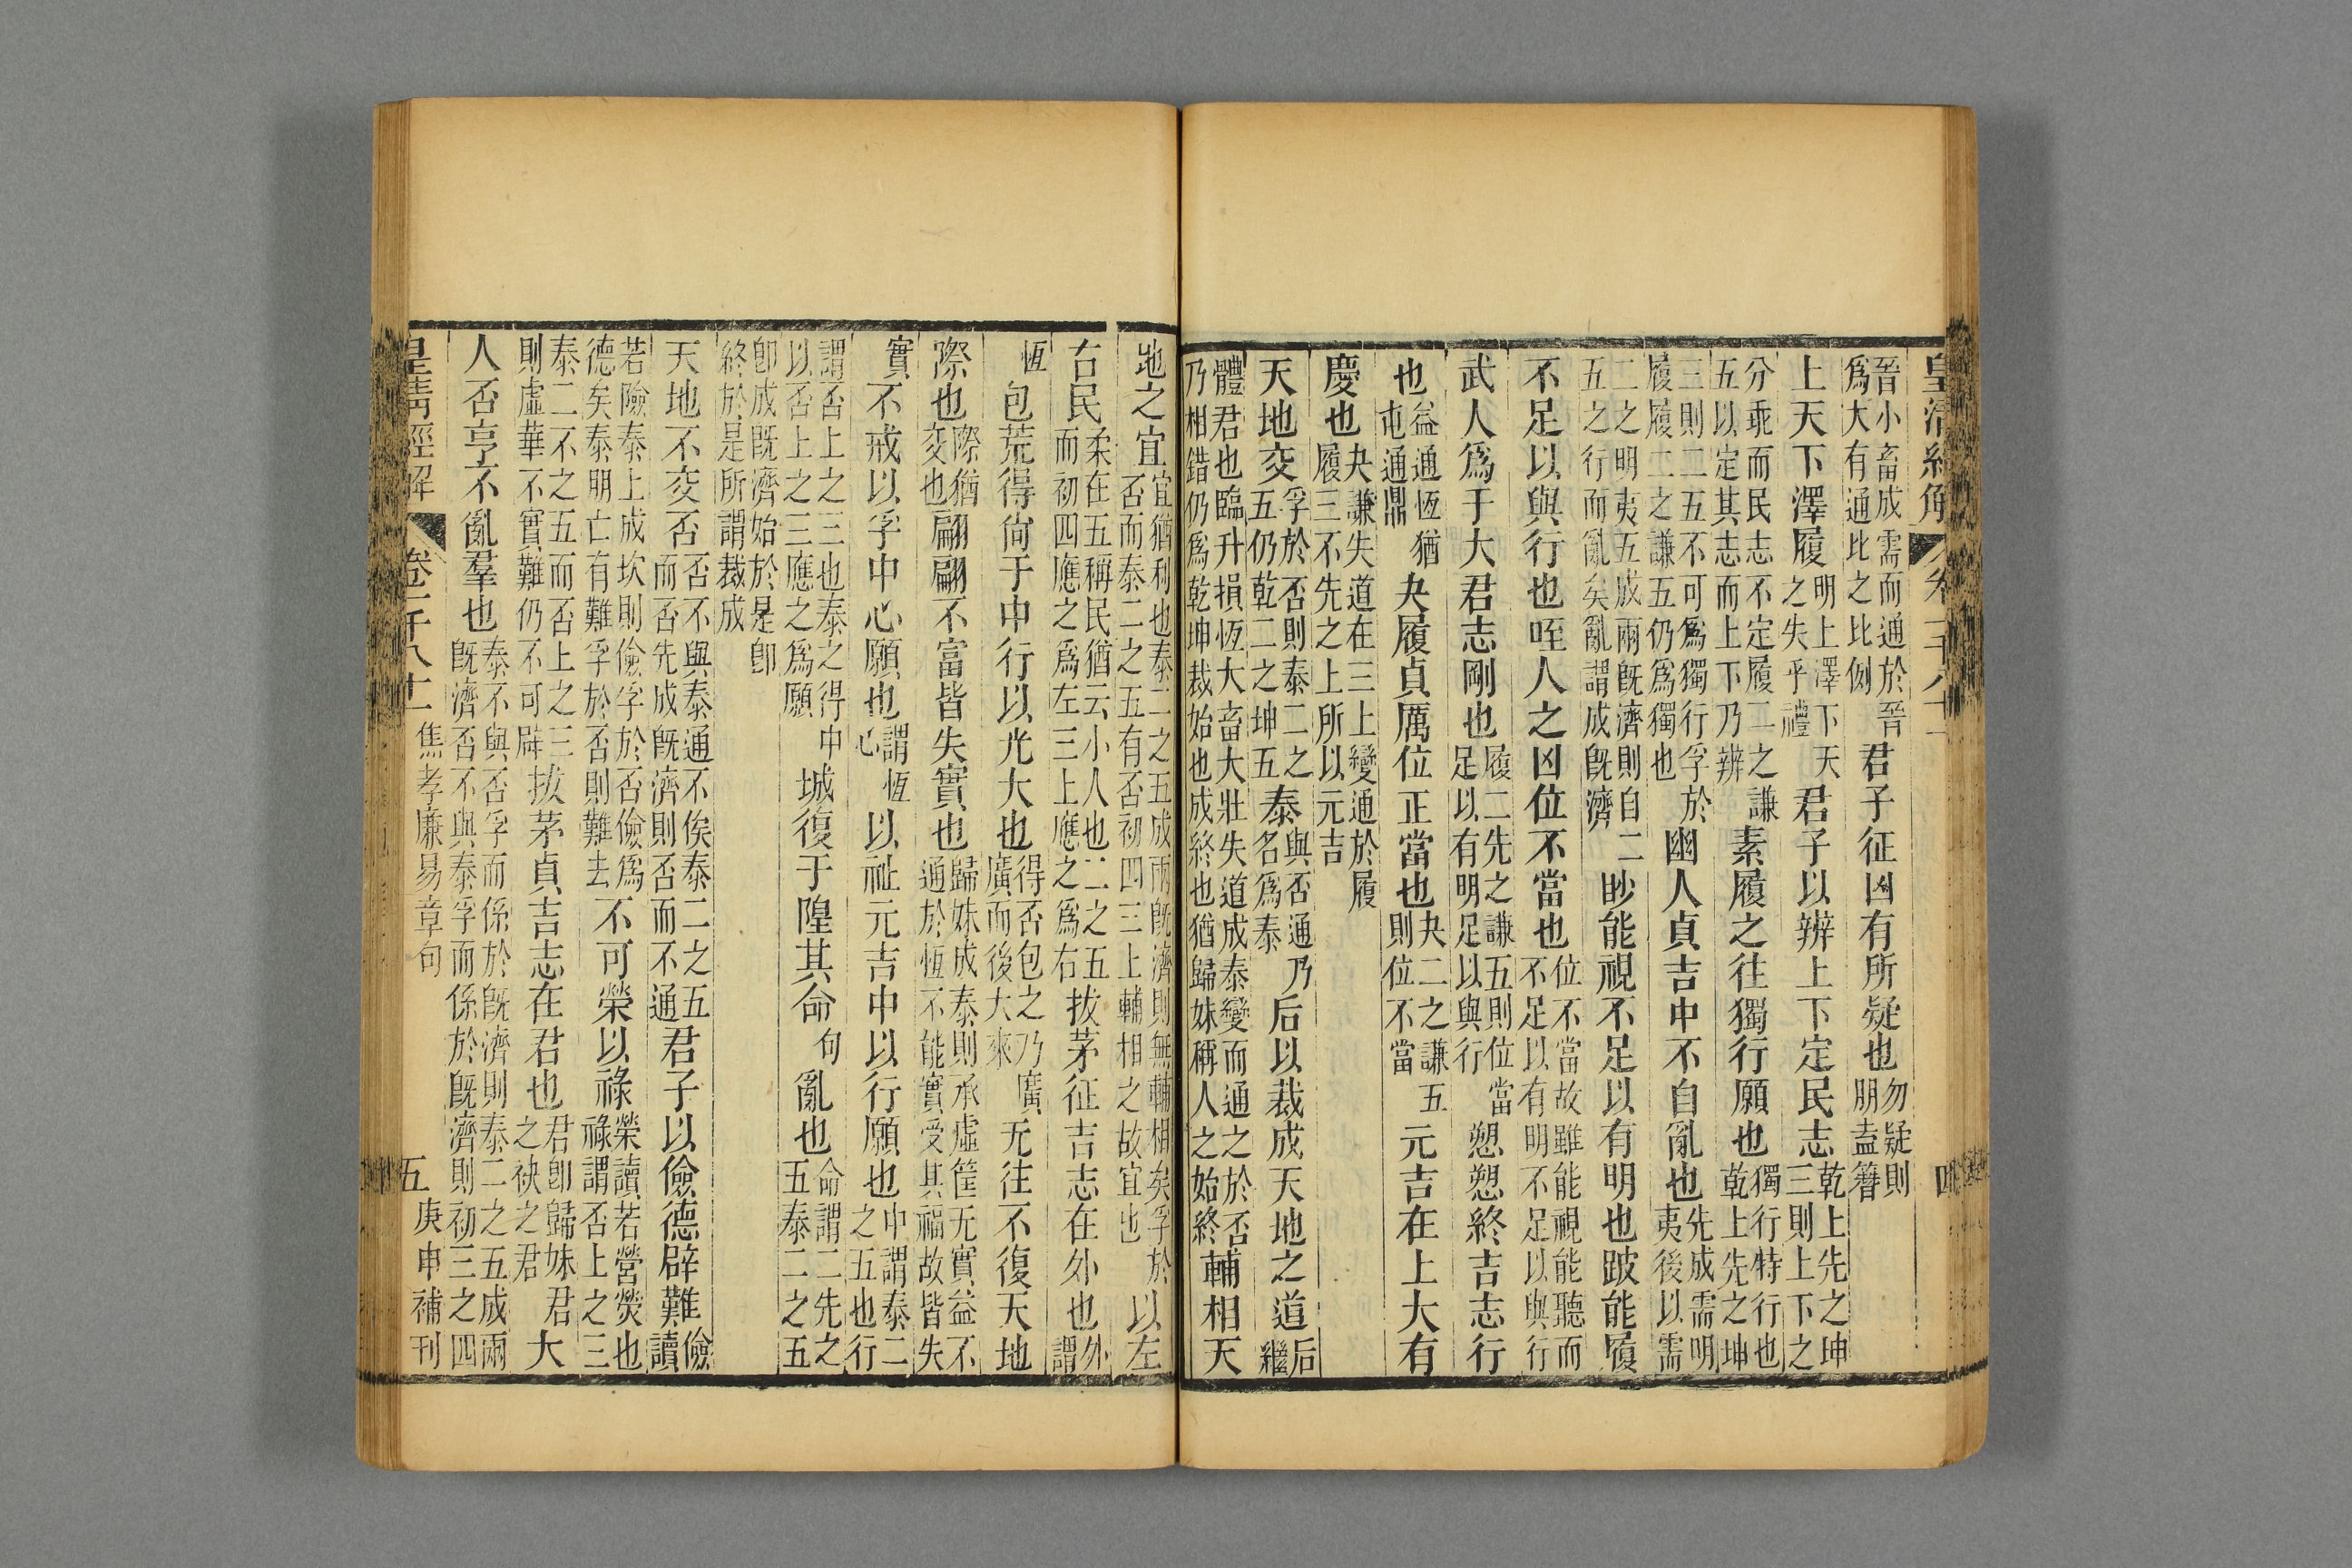 皇清經解 卷一千八十一 四
晉小畜成需而通於晉爲大有通此之比例君子征凶有所疑也勿疑則朋盍簪
上天下澤履明上澤下天之失乎禮君子以辨上下定民志乾上先之坤三則上下之
分乖而民志不定履二之謙五以定其志而上下乃辨素履之往獨行願也獨行特行也乾上先之坤
三則二五不可爲獨行孚於履履二之謙五仍爲獨也幽人貞吉中不自亂也先成需明夷後以需
二之明夷五成兩既濟則自二五之行而亂矣亂謂成既濟眇能視不足以有明也跛能履
不足以與行也咥人之凶位不當也位不當故雖能視能聽而不足以有明不足以與行
武人爲于大君志剛也履二先之謙五則位當足以有明足以與行愬愬終吉志行
也益通恆猶屯通鼎夬履貞厲位正當也夬二之謙五則位不當元吉在上大有
慶也夬謙失道在三上變通於履履三不先之上所以元吉
天地交孚於否則泰二之五仍乾二之坤五泰與否通乃名爲泰后以裁成天地之道后繼
體君也臨升損恆大畜大壯失道成泰變而通之於否乃相錯仍爲乾坤裁始也成終也猶歸妹稱人之始終輔相天
地之宜宜猶利也泰二之五成兩既濟則無輔相矣孚於否而泰二之五有否初四三上輔相之故宜也以左
右民柔在五稱民猶云小人也二之五而初四應之爲左三上應之爲右拔茅征吉志在外也外謂
恆包荒得尙于中行以光大也得否包之乃廣廣而後大來无往不復天地
際也際猶交也翩翩不富皆失實也歸妹成泰則承虛筐无實益不通於恆不能實受其福故皆失
實不戒以孚中心願也謂恆心以祉元吉中以行願也中謂泰二之五也行
謂否上之三也泰之得中以否上之三應之爲願城復于隍其命句亂也命謂二先之五泰二之五
卽成既濟始於是卽終於是所謂裁成
天地不交否否不與泰通不俟泰二之五而否先成既濟則否而不通君子以儉德辟難儉讀
若險泰上成坎則儉孚於否儉爲德矣泰明亡有難孚於否則難去不可榮以祿榮讀若營熒也祿謂否上之三
泰二不之五而否上之三則虛華不實難仍不可辟拔茅貞吉志在君也君卽歸妹君之袂之君大
人否亨不亂羣也泰不與否孚而係於既濟則泰二之五成兩既濟否不與泰孚而係於既濟則初三之四
皇清經解 卷一千八十一 焦孝廉易章句 五 庚申補刊